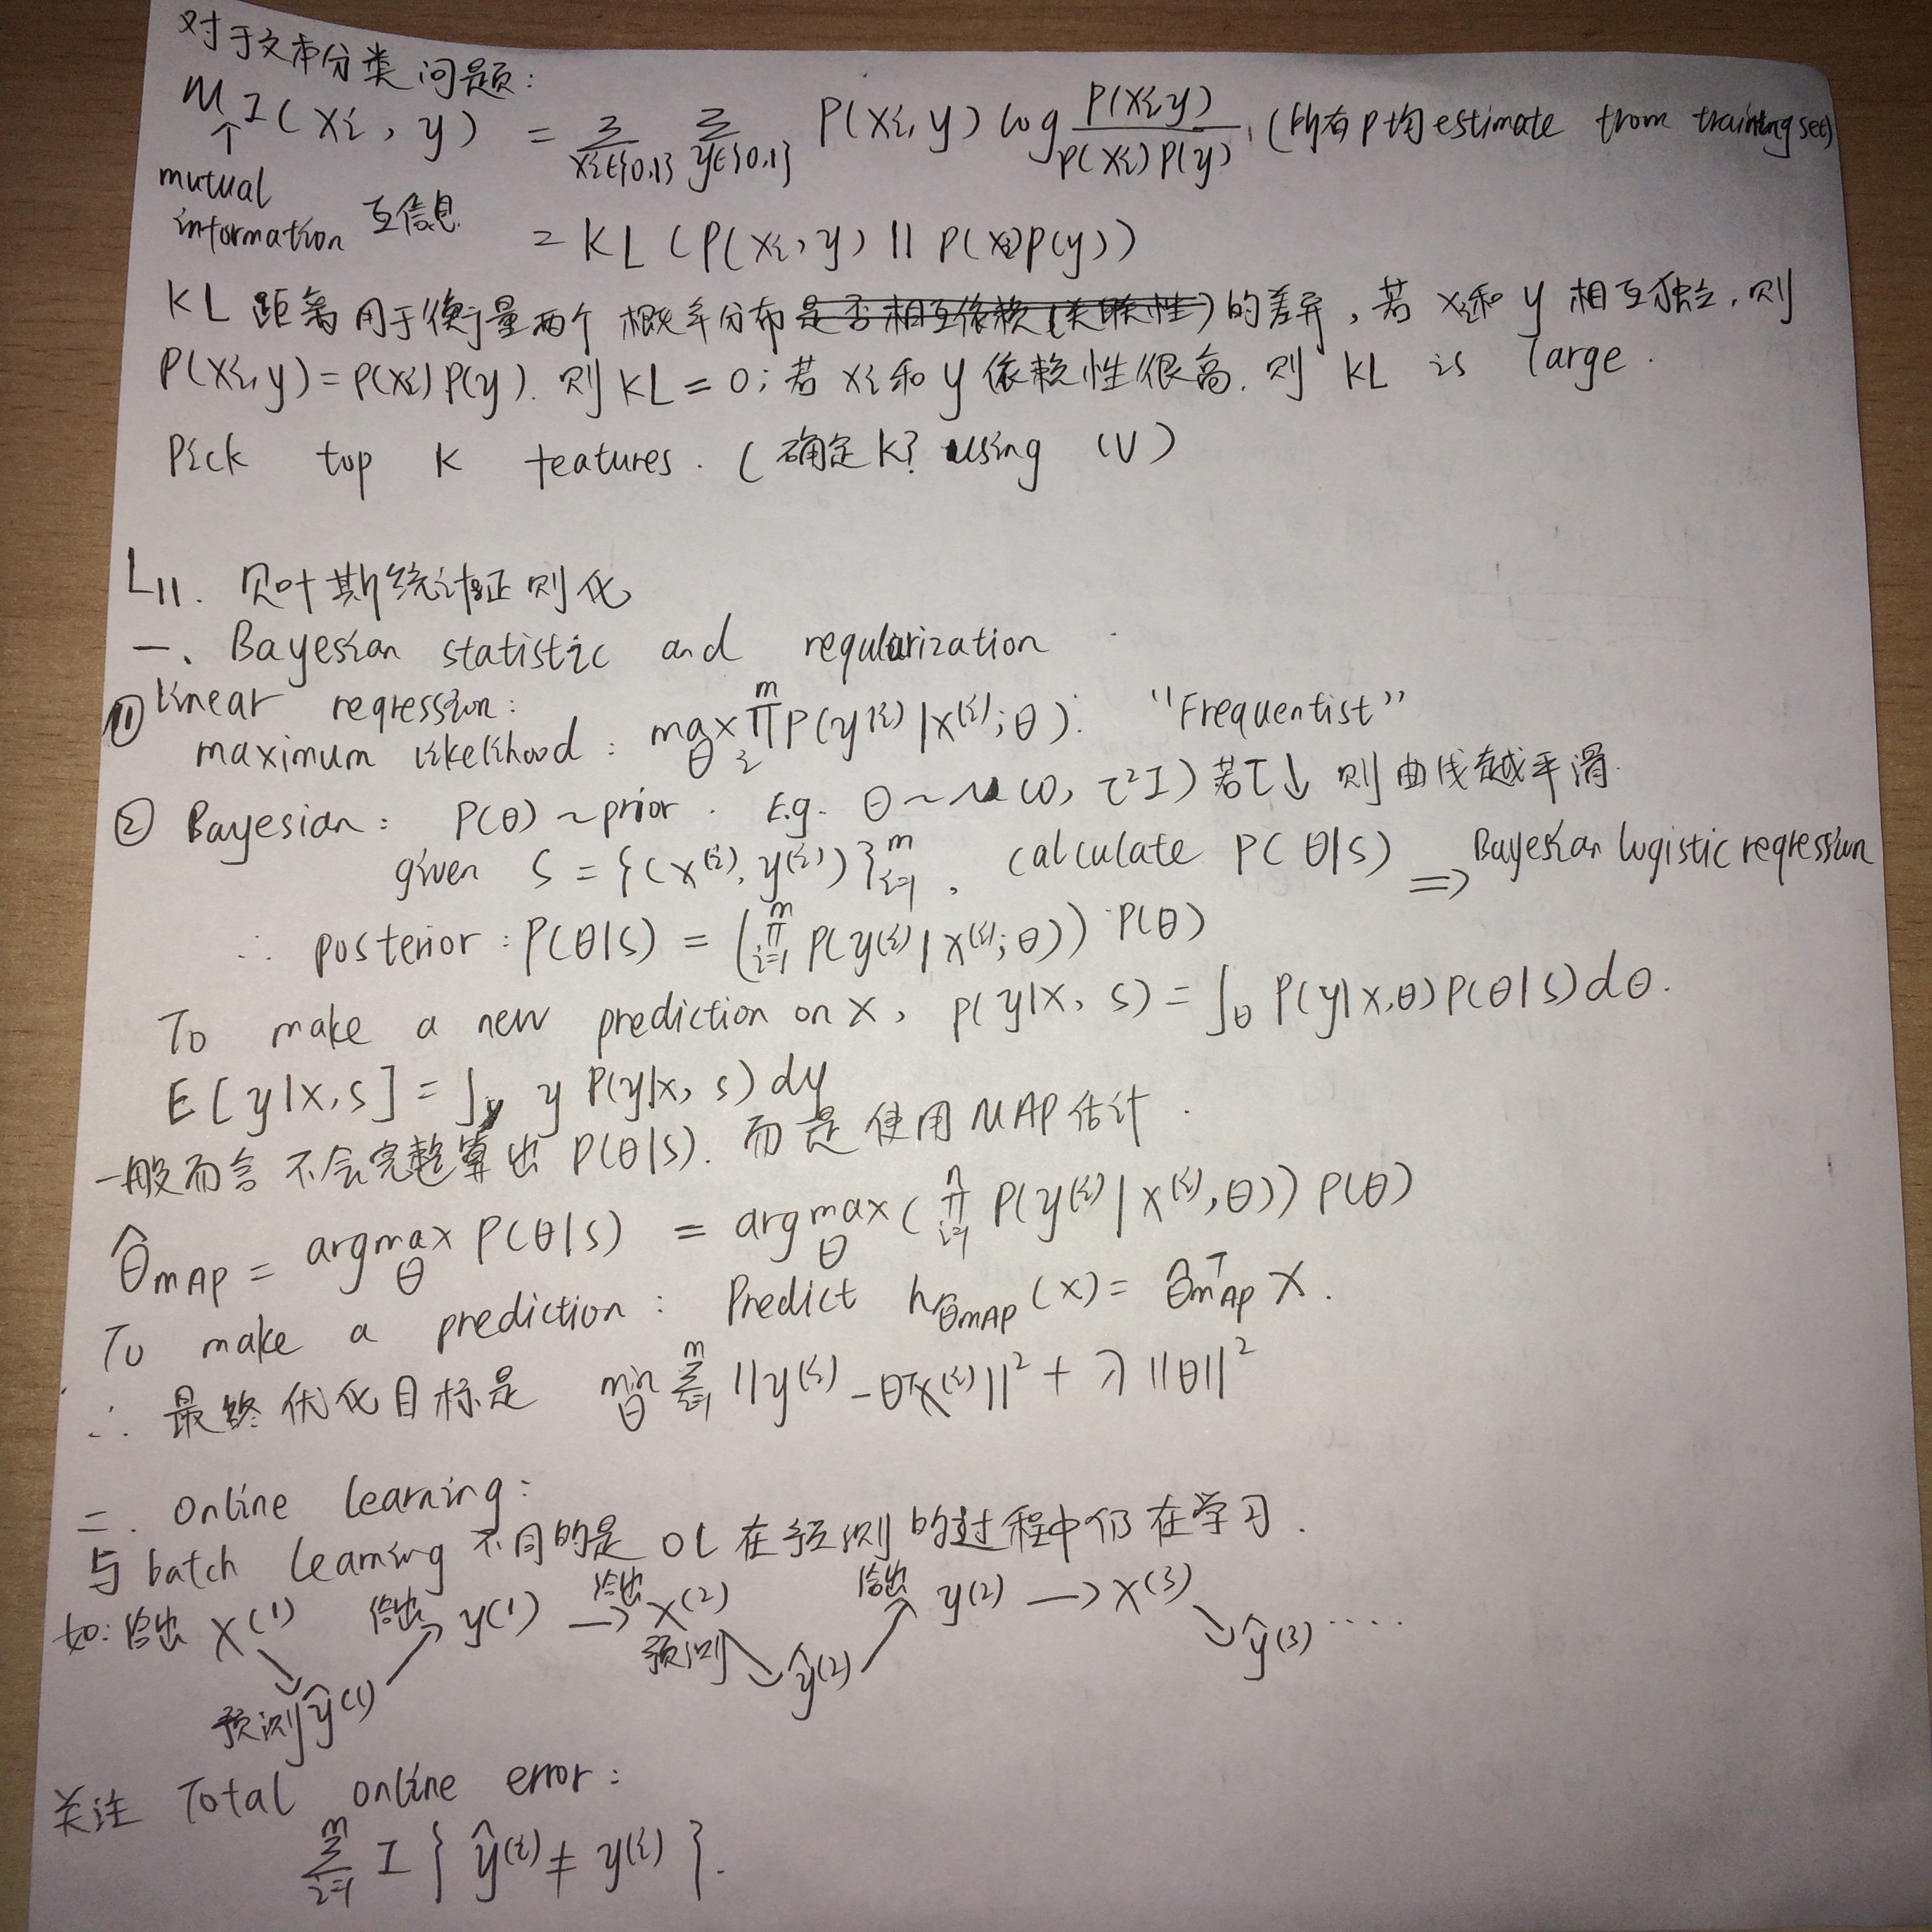 对于文本分类问题:
MI(xi, y) = Σ_{xi∈{0,1}} Σ_{y∈{0,1}} P(xi, y) log P(xi,y) / P(xi)P(y), (所有P均estimate from training set)
↑
mutual
information 互信息 = KL (P(xi, y) || P(xi)P(y))
KL 距离用于衡量两个概率分布的差异, 若 xi和 y 相互独立, 则
P(xi,y)=P(xi)P(y). 则 KL = 0; 若 xi 和 y 依赖性很高. 则 KL is large.
Pick top K features. (确定K? using CV)
L11. 贝叶斯统计正则化
一、Bayesian statistic and regularization
① linear regression:
maximum likelihood: max_θ ∏_i^m P(y^(i) | x^(i); θ). "Frequentist"
② Bayesian: P(θ) ~ prior. E.g. θ ~ N(0, τ²I) 若τ↓ 则曲线越平滑.
given S = {(x^(i), y^(i))}_{i=1}^m, calculate P(θ|S) ⇒ Bayesian logistic regression
∴ posterior: P(θ|S) = (∏_{i=1}^m P(y^(i) | x^(i); θ)) · P(θ)
To make a new prediction on x, P(y|x, S) = ∫_θ P(y|x,θ) P(θ|S) dθ.
E[y|x,S] = ∫_y y P(y|x, S) dy
一般而言不会完整算出 P(θ|S). 而是使用 MAP 估计.
θ̂_MAP = argmax_θ P(θ|S) = argmax_θ (∏_{i=1}^n P(y^(i) | x^(i), θ)) P(θ)
To make a prediction: Predict h_θ̂MAP (x) = θ̂_MAP^T x.
∴ 最终优化目标是 min_θ Σ_{i=1}^m ||y^(i) - θ^T x^(i)||² + λ||θ||²
二. Online learning:
与 batch learning 不同的是 OL 在预测的过程中仍在学习.
如: 给出 x^(1) 给出 y^(1) → 给出 x^(2) 给出 y^(2) → x^(3)
预测 ŷ^(1) 预测 ŷ^(2) ŷ^(3) ……
关注 Total online error:
Σ_{i=1}^m I{ŷ^(i) ≠ y^(i)}.